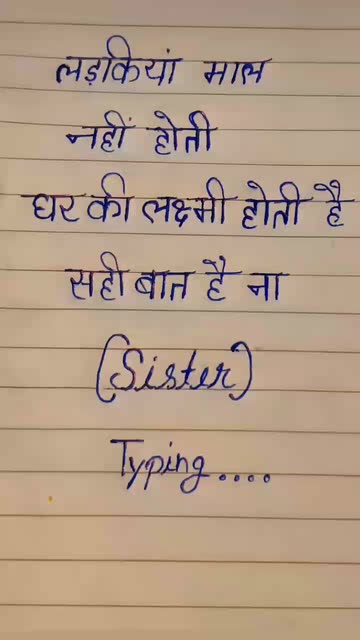 लड़कियां माल
नहीं होती
घर की लक्ष्मी होती है
सही बात है ना
(Sister)
Typing....